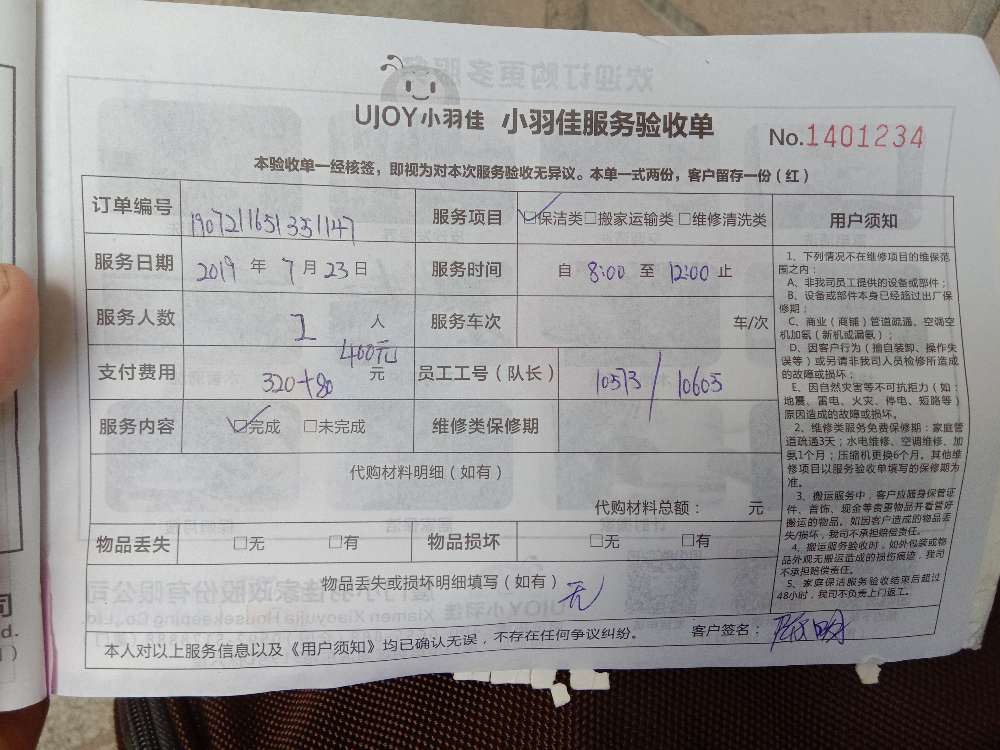 UJOY小羽佳 小羽佳服务验收单
No.1401234
本验收单一经核签，即视为对本次服务验收无异议。本单一式两份，客户留存一份（红）
订单编号 1907211651351147 服务项目 ☑保洁类□搬家运输类 □维修清洗类
服务日期 2019 年 7 月 23 日 服务时间 自 8:00 至 12:00 止
服务人数 2 人 服务车次 车/次
400元
支付费用 320+80 元 员工工号（队长） 10573 / 10605
服务内容 ☑完成 □未完成 维修类保修期
代购材料明细（如有）
代购材料总额： 元
物品丢失 □无 □有 物品损坏 □无 □有
物品丢失或损坏明细填写（如有） 无
本人对以上服务信息以及《用户须知》均已确认无误，不存在任何争议纠纷。 客户签名：
用户须知
1、下列情况不在维修项目的维保范
围之内：
A、非我司员工提供的设备或部件；
B、设备或部件本身已经超过出厂保
修期；
C、商业（商铺）管道疏通、空调空
机加氨（新机或漏氨）；
D、因客户行为（擅自装卸、操作失
误等）或另请非我司人员检修所造成
的故障或损坏；
E、因自然灾害等不可抗拒力（如：
地震、雷电、火灾、停电、短路等）
原因造成的故障或损坏。
2、维修类服务免费保修期：家庭管
道疏通3天；水电维修、空调维修、加
氨1个月；压缩机更换6个月。其他维
修项目以服务验收单填写的保修期为
准。
3、搬运服务中，客户应随身保管证
件、首饰、现金等贵重物品并看管好
搬运的物品。如因客户造成的物品丢
失/损坏，我司不承担赔偿责任。
4、搬运服务验收时，如外包装或物
品外观无搬运造成的损伤痕迹，我司
不承担赔偿责任。
5、家庭保洁服务验收结束后超过
48小时，我司不负责上门返工。